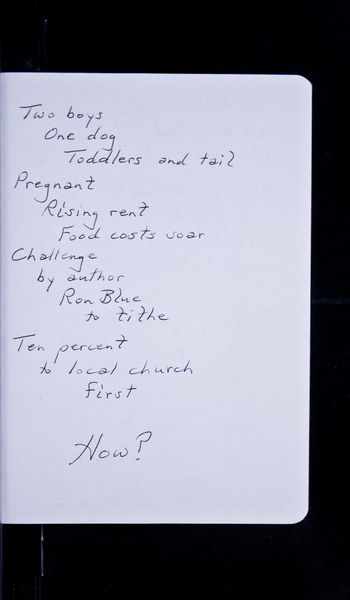 Two boys
One dog
Toddlers and tail
Pregnant
Rising rent
Food costs soar
Challenge
by author
Ron Blue
to tithe
Ten percent
to local church
first
How?